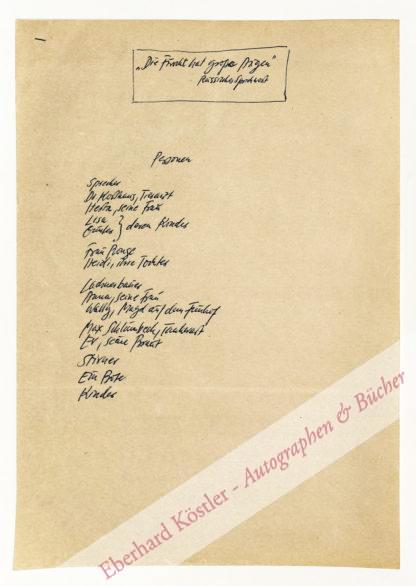 „Die Furcht hat große Augen"
Russisches Sprichwort
Personen
Sprecher
Dr Korthaus, Tierarzt
Herta, seine Frau
Lisa
} deren Kinder
Frau Runge
Heidi, ihre Tochter
Anna, seine Frau
Wally, Magd auf dem
Max Schlumbeck, Tankwart
Ev, seine Braut
Stirner
Ein Bote
Kinder
Eberhard Köstler - Autographen & Bücher